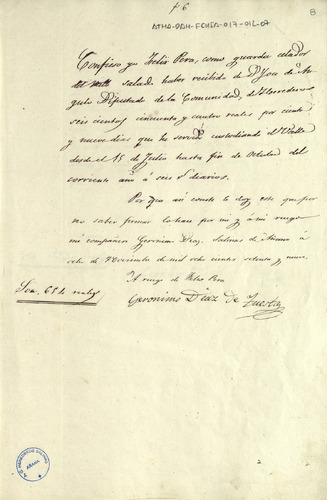 6
8
ATHA-DAH-FCHSA-017-012-07
Confieso yo Felix Pera, como guarda celador
del salado, haber recibido de D. José de An-
gulo Diputado de la Comunidad, de Herederos
seis cientos cincuenta y cuatro reales por ciento
y nueve dias que he servido custodiando el Valle
desde el 15 de Julio hasta fin de Octubre del
corriente año á seis diarios.
Por que asi conste le doy este que por
no saber firmar lo hace por mi y á mi ruego
mi compañero Geronimo Diaz. Salinas de Añana á
ocho de Noviembre de mil ocho cientos setenta y nueve.
A ruego de Felix Pera
Son 654 reales
Geronimo Diaz de Tuesta
ALAVA
2